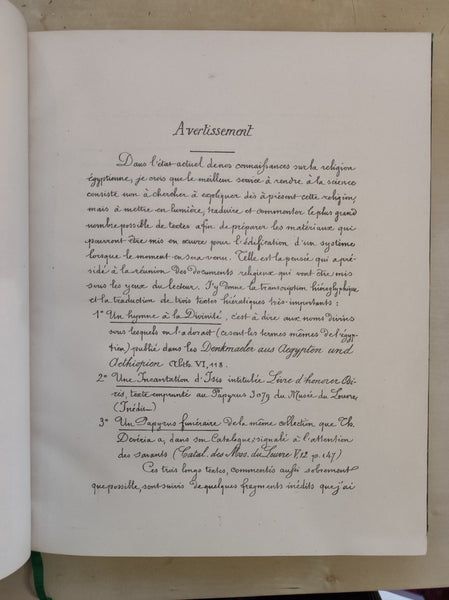 Avertissement
Dans l'état actuel de nos connaissances sur la religion
égyptienne, je crois que le meilleur service à rendre à la science
consiste non à chercher à expliquer dès à présent cette religion,
mais à mettre en lumière, traduire et commenter le plus grand
nombre possible de textes afin de préparer les matériaux qui
pourront être mis en œuvre pour l'édification d'un système
lorsque le moment en sera venu. Telle est la pensée qui a pré-
sidé à la réunion des documents religieux qui vont être mis
sous les yeux du lecteur. J'y donne la transcription hiéroglyphique
et la traduction de trois textes hiératiques très-importants :
1° Un hymne à la Divinité, c'est à dire aux noms divins
sous lesquels on l'adorait (ce sont les termes mêmes de l'égyp-
tien) publié dans les Denkmaeler aus Aegypten und
Aethiopien Abth. VI, 118.
2° Une Incantation d'Isis intitulée Livre d'honorer Osi-
ris, texte emprunté au Papyrus 3079 du Musée du Louvre,
(Inédit)
3° Un Papyrus funéraire de la même collection que Th.
Dévéria a, dans son Catalogue, signalé à l'attention
des savants (Catal. des Mss. du Louvre V, 12 p. 147)
Ces trois longs textes, commentés aussi sobrement
que possible, sont suivis de quelques fragments inédits que j'ai